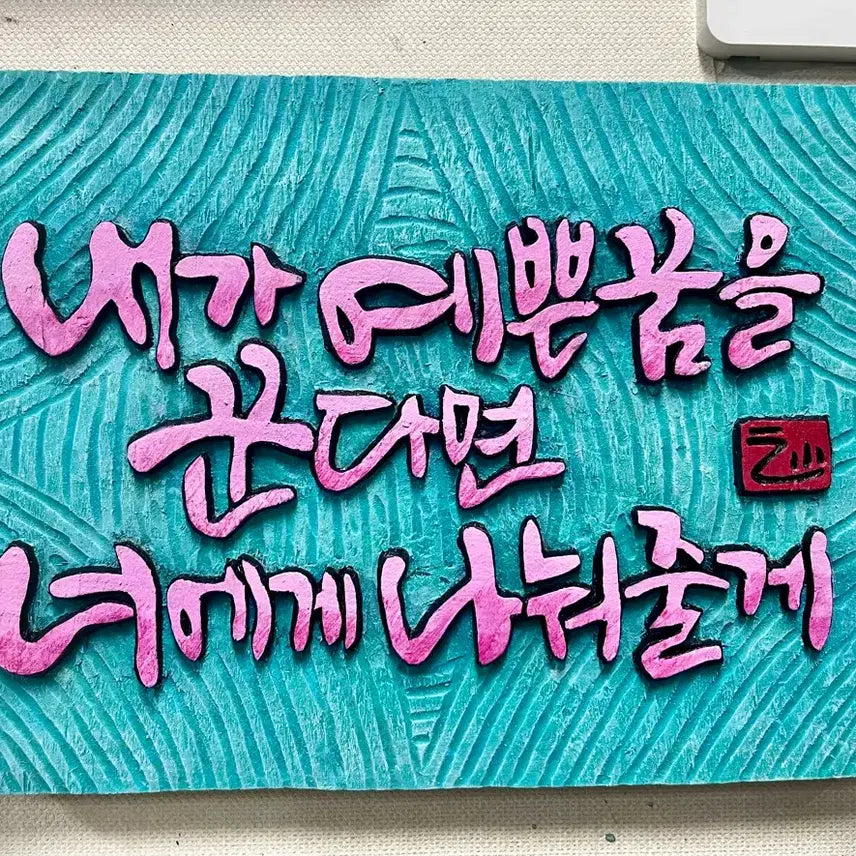 내가 예쁜꿈을
꾼다면
너에게 나눠줄게